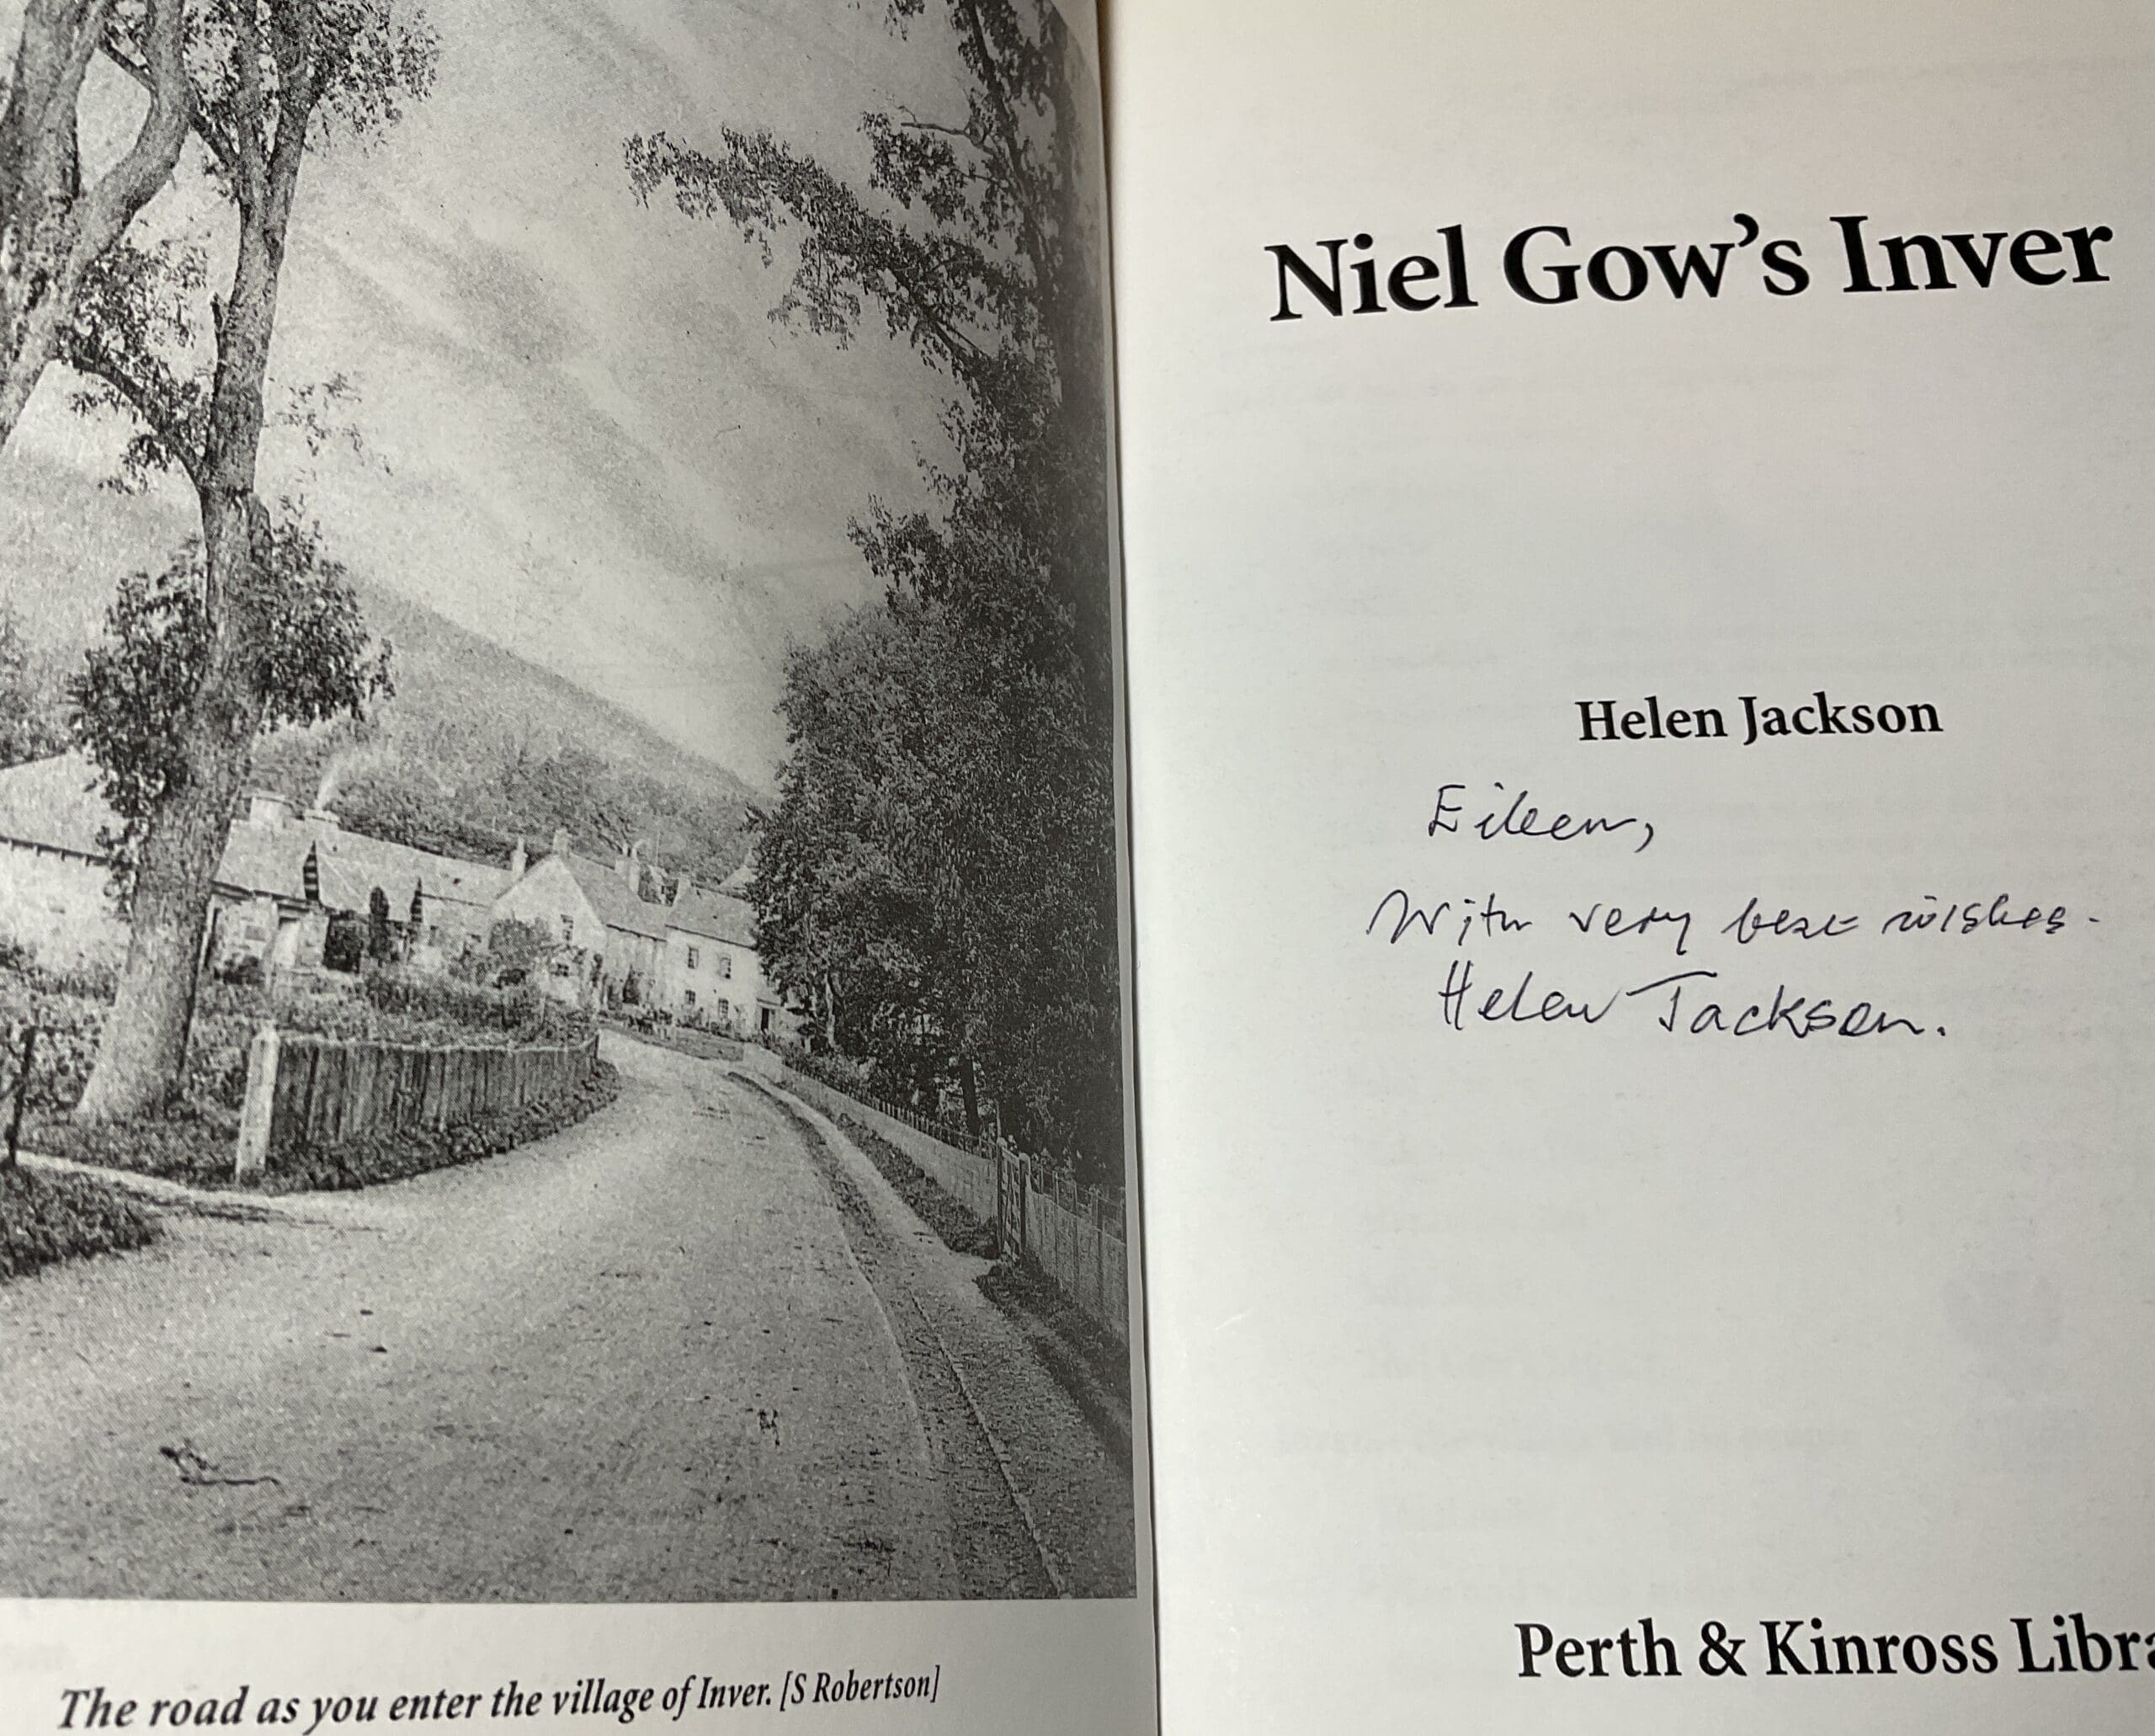 The road as you enter the village of Inver. [S Robertson]
Niel Gow's Inver
Helen Jackson
Eileen,
With very best wishes.
Helen Jackson.
Perth & Kinross Libra